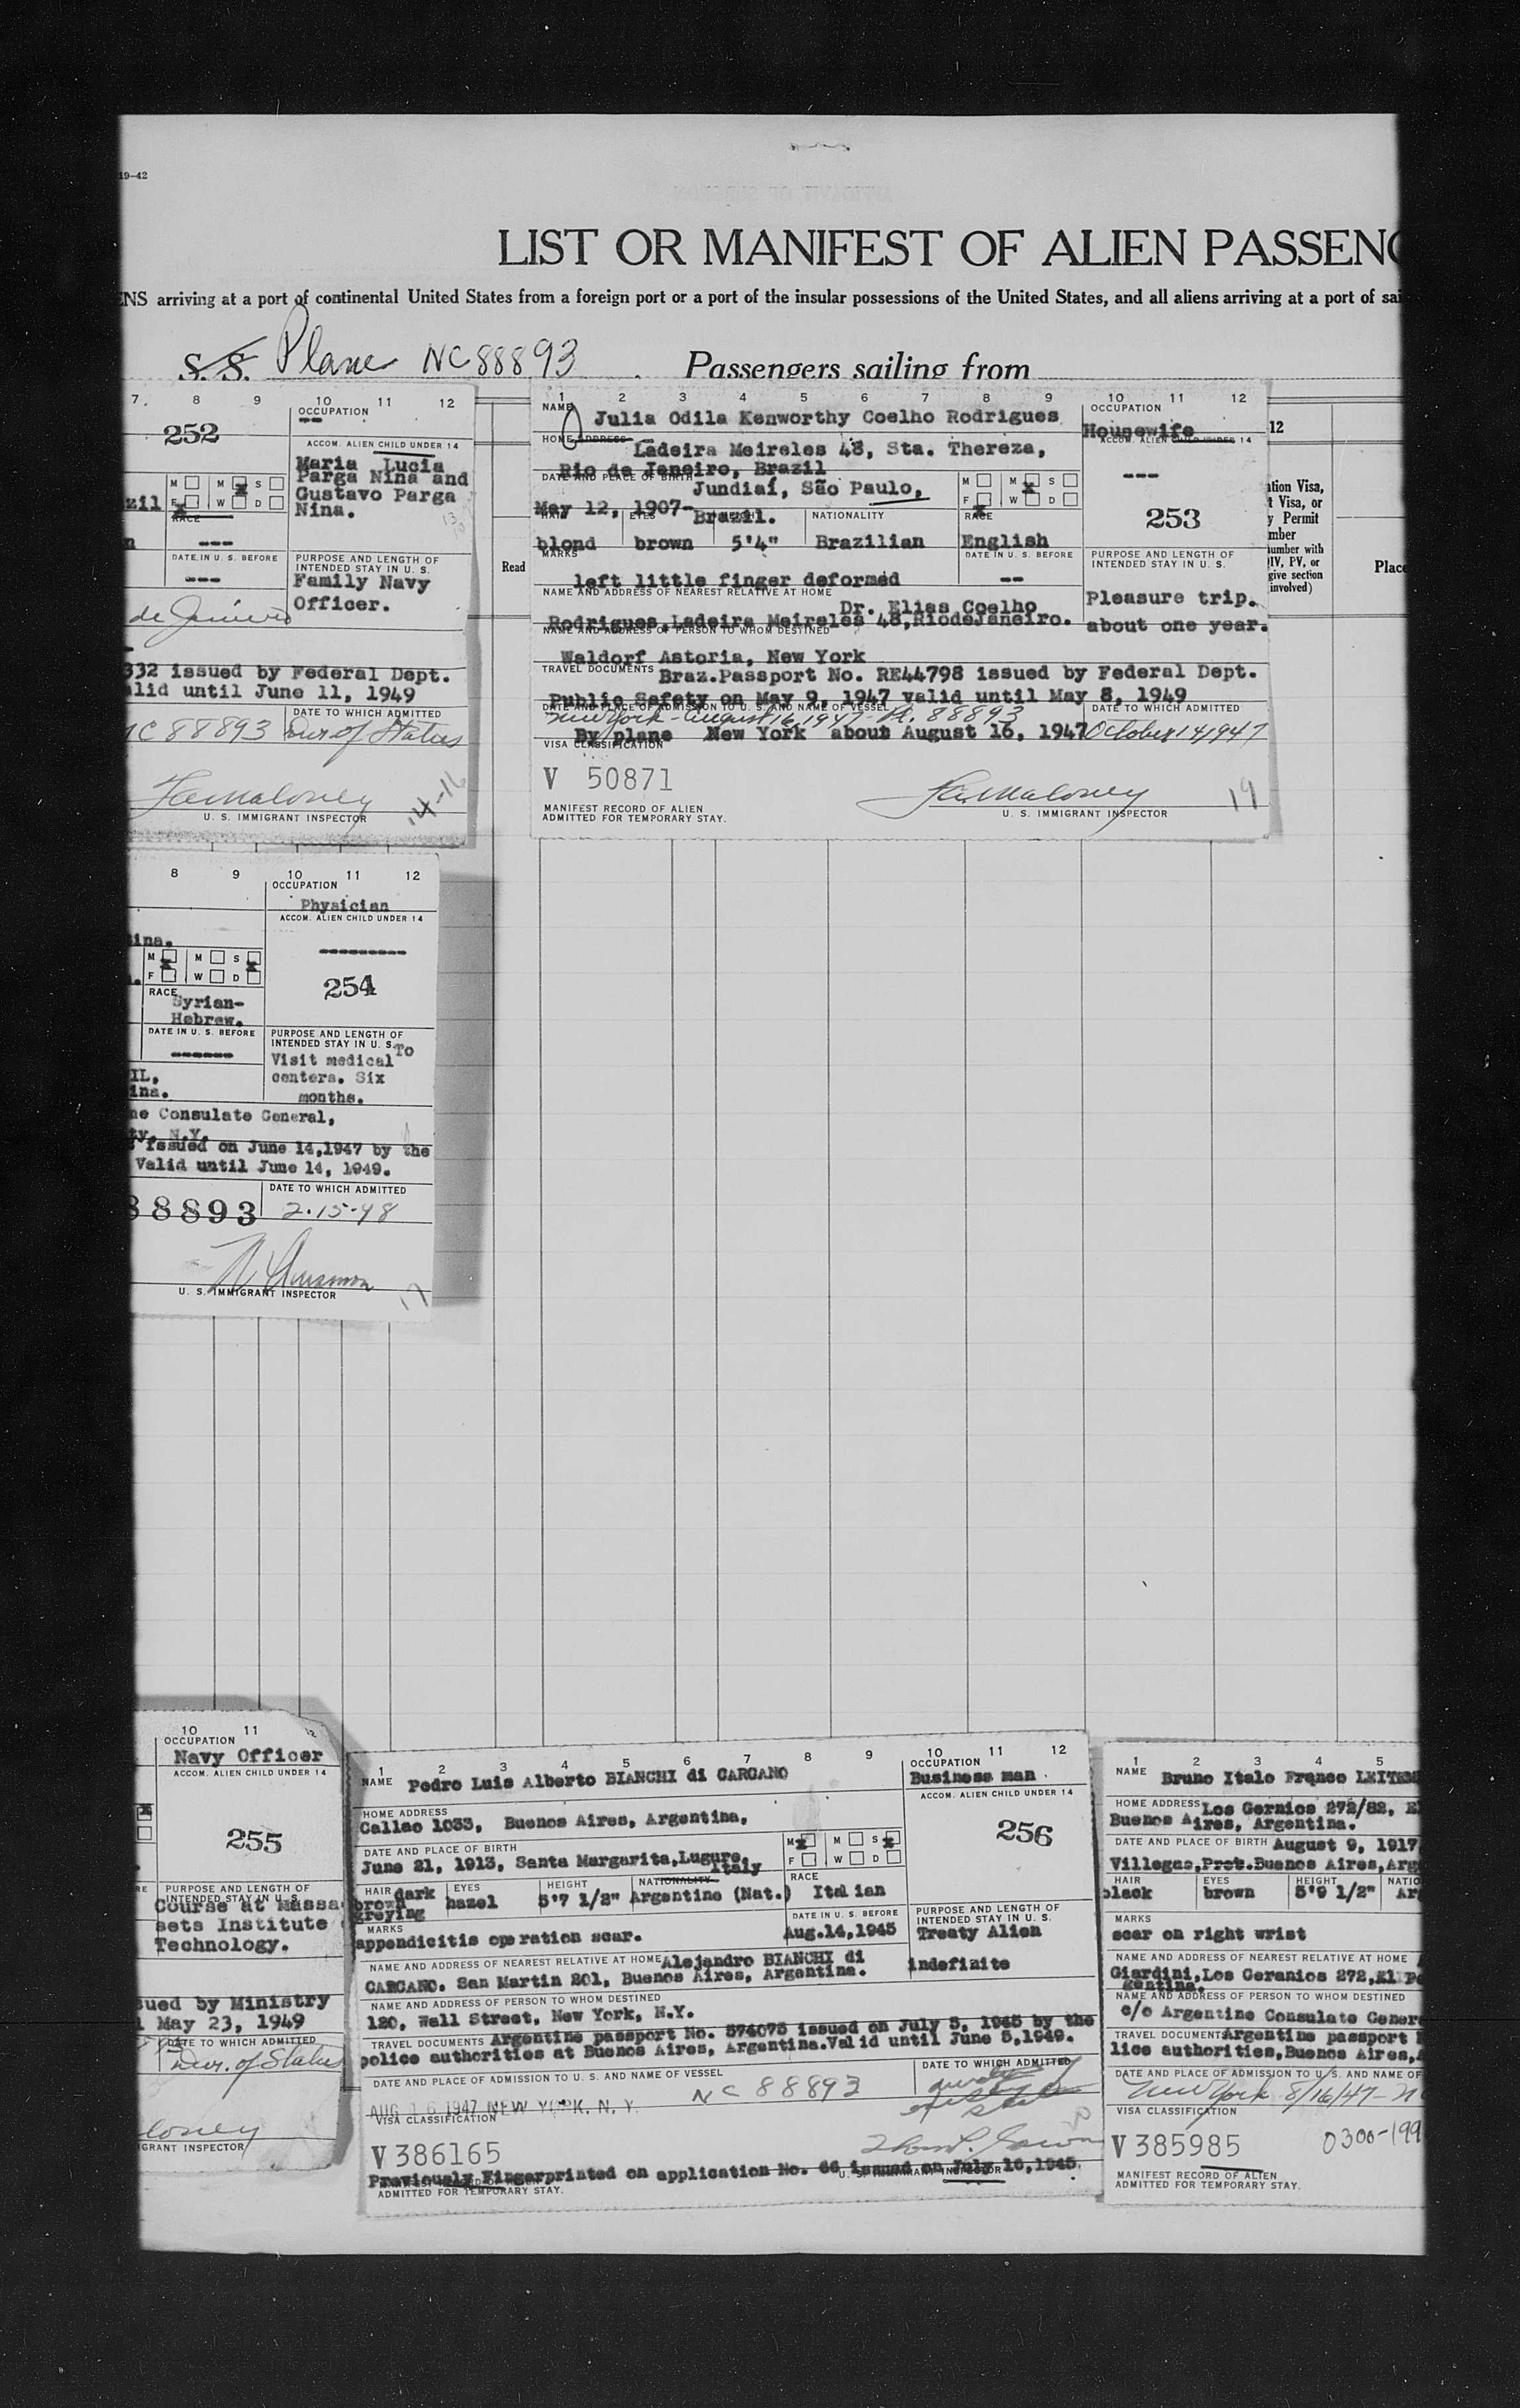 19-42
LIST OR MANIFEST OF ALIEN PASSENG
ENS arriving at a port of continental United States from a foreign port or a port of the insular possessions of the United States, and all aliens arriving at a port of sai
S. S. Plane NC 88893 Passengers sailing from
7. 8 9 10 11 12
OCCUPATION
--
252
ACCOM. ALIEN CHILD UNDER 14
Maria Lucia
Parga Nina and
Gustavo Parga
Nina.
M M S
F W D
zil
RACE
---
DATE IN U. S. BEFORE
---
PURPOSE AND LENGTH OF
INTENDED STAY IN U. S.
Family Navy
Officer.
de Janeiro
332 issued by Federal Dept.
alid until June 11, 1949
DATE TO WHICH ADMITTED
NC 88893 Dur of Status
14-16
U. S. IMMIGRANT INSPECTOR
1 2 3 4 5 6 7 8 9 10 11 12
NAME
Julia Odila Kenworthy Coelho Rodrigues
HOME ADDRESS
Ladeira Meireles 48, Sta. Thereza,
Rio de Janeiro, Brazil
DATE AND PLACE OF BIRTH
Jundiaí, São Paulo,
May 12, 1907- Brazil.
M M S
F W D
HAIR EYES HEIGHT NATIONALITY RACE
blond brown 5'4" Brazilian English
MARKS
DATE IN U. S. BEFORE
left little finger deformed --
NAME AND ADDRESS OF NEAREST RELATIVE AT HOME
Dr. Elias Coelho
Rodrigues,Ladeira Meireles 48,RiodeJaneiro.
NAME AND ADDRESS OF PERSON TO WHOM DESTINED
Waldorf Astoria, New York
TRAVEL DOCUMENTS
Braz.Passport No. RE44798 issued by Federal Dept.
Public Safety on May 9, 1947 valid until May 8, 1949
DATE AND PLACE OF ADMISSION TO U. S. AND NAME OF VESSEL
New York - August 16, 1947 - Pl. 88893
By plane New York about August 16, 1947
DATE TO WHICH ADMITTED
October 14 1947
VISA CLASSIFICATION
V 50871
MANIFEST RECORD OF ALIEN
ADMITTED FOR TEMPORARY STAY.
19
U. S. IMMIGRANT INSPECTOR
OCCUPATION
Housewife
ACCOM. ALIEN CHILD UNDER 14
---
253
PURPOSE AND LENGTH OF
INTENDED STAY IN U. S.
Pleasure trip.
about one year.
Read
12
ation Visa,
t Visa, or
y Permit
mber
number with
IV, PV, or
give section
involved)
Place
8 9 10 11 12
OCCUPATION
Physician
ACCOM. ALIEN CHILD UNDER 14
---------
254
tina.
M M S
F W D
RACE
Syrian-
Hebrew.
DATE IN U. S. BEFORE
------
PURPOSE AND LENGTH OF
INTENDED STAY IN U. S.
To
Visit medical
centers. Six
months.
IL,
ina.
ne Consulate General,
ty, N.Y.
issued on June 14,1947 by the
Valid until June 14, 1949.
DATE TO WHICH ADMITTED
88893 2-15-48
U. S. IMMIGRANT INSPECTOR
17
10 11 12
OCCUPATION
Navy Officer
ACCOM. ALIEN CHILD UNDER 14
255
PURPOSE AND LENGTH OF
INTENDED STAY IN U. S.
Course at Massa
sets Institute
Technology.
sued by Ministry
May 23, 1949
DATE TO WHICH ADMITTED
Dur. of Status
loney
GRANT INSPECTOR
1 2 3 4 5 6 7 8 9 10 11 12
NAME Pedro Luis Alberto BIANCHI di CARCANO
HOME ADDRESS
Callao 1033, Buenos Aires, Argentina,
DATE AND PLACE OF BIRTH
June 21, 1913, Santa Margarita,Lugure,
Italy
M M S
F W D
HAIR EYES HEIGHT NATIONALITY RACE
dark
brown
greying
hazel 5'7 1/2" Argentine (Nat.) Italian
MARKS
appendicitis operation scar.
DATE IN U. S. BEFORE
Aug.14,1945
NAME AND ADDRESS OF NEAREST RELATIVE AT HOME Alejandro BIANCHI di
CARCANO. San Martin 201, Buenos Aires, Argentina.
NAME AND ADDRESS OF PERSON TO WHOM DESTINED
120, Wall Street, New York, N.Y.
TRAVEL DOCUMENTS Argentine passport No. 574075 issued on July 5, 1945 by the
police authorities at Buenos Aires, Argentina.Valid until June 5,1949.
DATE AND PLACE OF ADMISSION TO U. S. AND NAME OF VESSEL
NC 88893
AUG 16 1947 NEW YORK, N. Y.
DATE TO WHICH ADMITTED
VISA CLASSIFICATION
V 386165
Previously Fingerprinted on application No. 66 issued on July 16,1945.
ADMITTED FOR TEMPORARY STAY.
OCCUPATION
Business man
ACCOM. ALIEN CHILD UNDER 14
256
PURPOSE AND LENGTH OF
INTENDED STAY IN U. S.
Treaty Alien
indefinite
1 2 3 4 5
NAME Bruno Italo Franco
HOME ADDRESS Los Gernios 272/82, E
Buenos Aires, Argentina.
DATE AND PLACE OF BIRTH August 9, 1917
Villegas,Prot.Buenos Aires,Arg
HAIR EYES HEIGHT NATIO
black brown 5'9 1/2" Ar
MARKS
scar on right wrist
NAME AND ADDRESS OF NEAREST RELATIVE AT HOME
Giardini,Los Geranios 272,El P
gentina.
NAME AND ADDRESS OF PERSON TO WHOM DESTINED
c/o Argentine Consulate Gener
TRAVEL DOCUMENT Argentine passport
lice authorities,Buenos Aires,A
DATE AND PLACE OF ADMISSION TO U. S. AND NAME OF
New York 8/16/47 - N
VISA CLASSIFICATION
V 385985
0300-199
MANIFEST RECORD OF ALIEN
ADMITTED FOR TEMPORARY STAY.